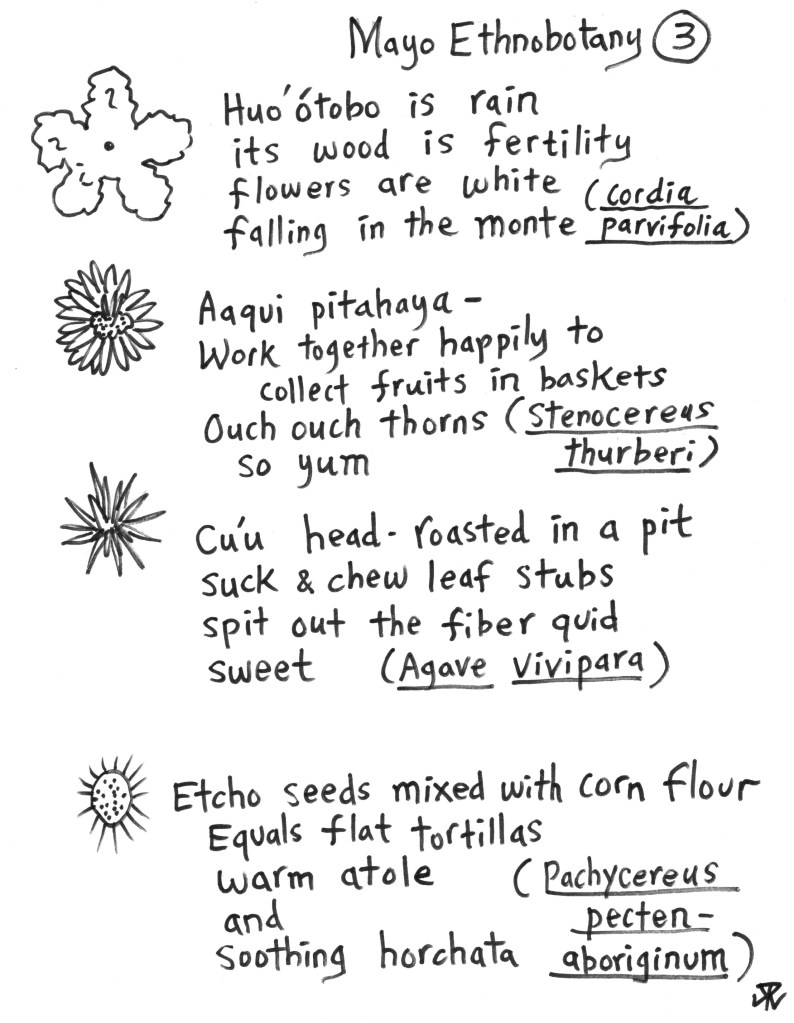 Mayo Ethnobotany 3
Huo'ótobo is rain
its wood is fertility
flowers are white (Cordia
falling in the monte parvifolia)
Aaqui pitahaya -
Work together happily to
collect fruits in baskets
Ouch ouch thorns (Stenocereus
so yum thurberi)
Cu'u head - roasted in a pit
suck & chew leaf stubs
spit out the fiber quid
sweet (Agave vivipara)
Etcho seeds mixed with corn flour
Equals flat tortillas
warm atole (Pachycereus
and pecten-
Soothing horchata aboriginum)